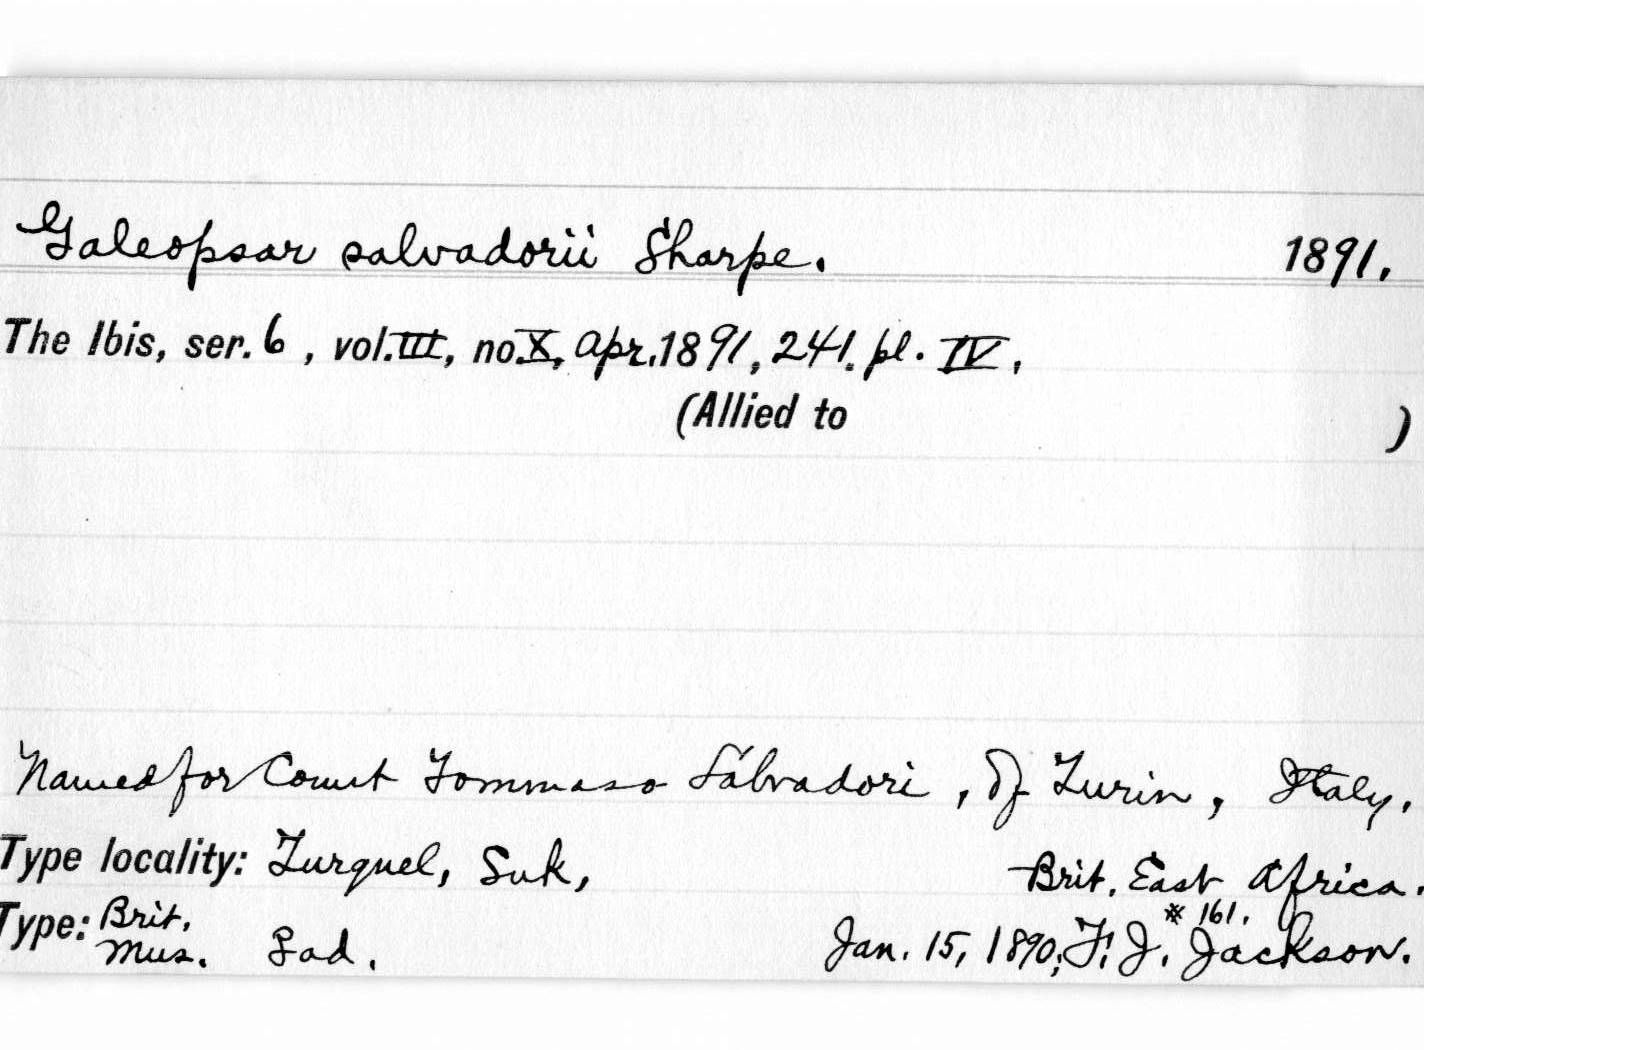 Galeopsar salvadorii Sharpe. 1891.
The Ibis, ser. 6, vol. III, no. X, Apr. 1891, 241. pl. IV.
(Allied to )
Named for Count Tommaso Salvadori, of Turin, Italy.
Type locality: Turquel, Suk, Brit. East Africa.
Type: Brit. Mus. ad. Jan. 15, 1890; F. J. Jackson.
# 161.